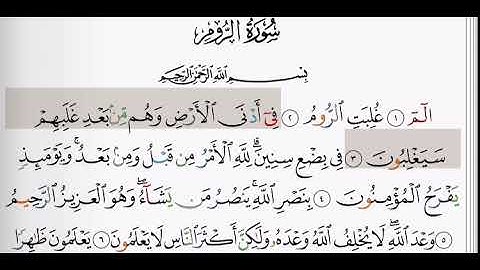 سُورَةُ الرُّومِ
بِسْمِ اللَّهِ الرَّحْمَٰنِ الرَّحِيمِ
الٓمٓ ١ غُلِبَتِ الرُّومُ ٢ فِىٓ أَدْنَى الْأَرْضِ وَهُم مِّنۢ بَعْدِ غَلَبِهِمْ
سَيَغْلِبُونَ ٣ فِى بِضْعِ سِنِينَ ۗ لِلَّهِ الْأَمْرُ مِن قَبْلُ وَمِنۢ بَعْدُ ۚ وَيَوْمَئِذٍ
يَفْرَحُ الْمُؤْمِنُونَ ٤ بِنَصْرِ اللَّهِ ۚ يَنصُرُ مَن يَشَآءُ ۖ وَهُوَ الْعَزِيزُ الرَّحِيمُ
٥ وَعْدَ اللَّهِ ۖ لَا يُخْلِفُ اللَّهُ وَعْدَهُۥ وَلَٰكِنَّ أَكْثَرَ النَّاسِ لَا يَعْلَمُونَ ٦ يَعْلَمُونَ ظَٰهِرًا